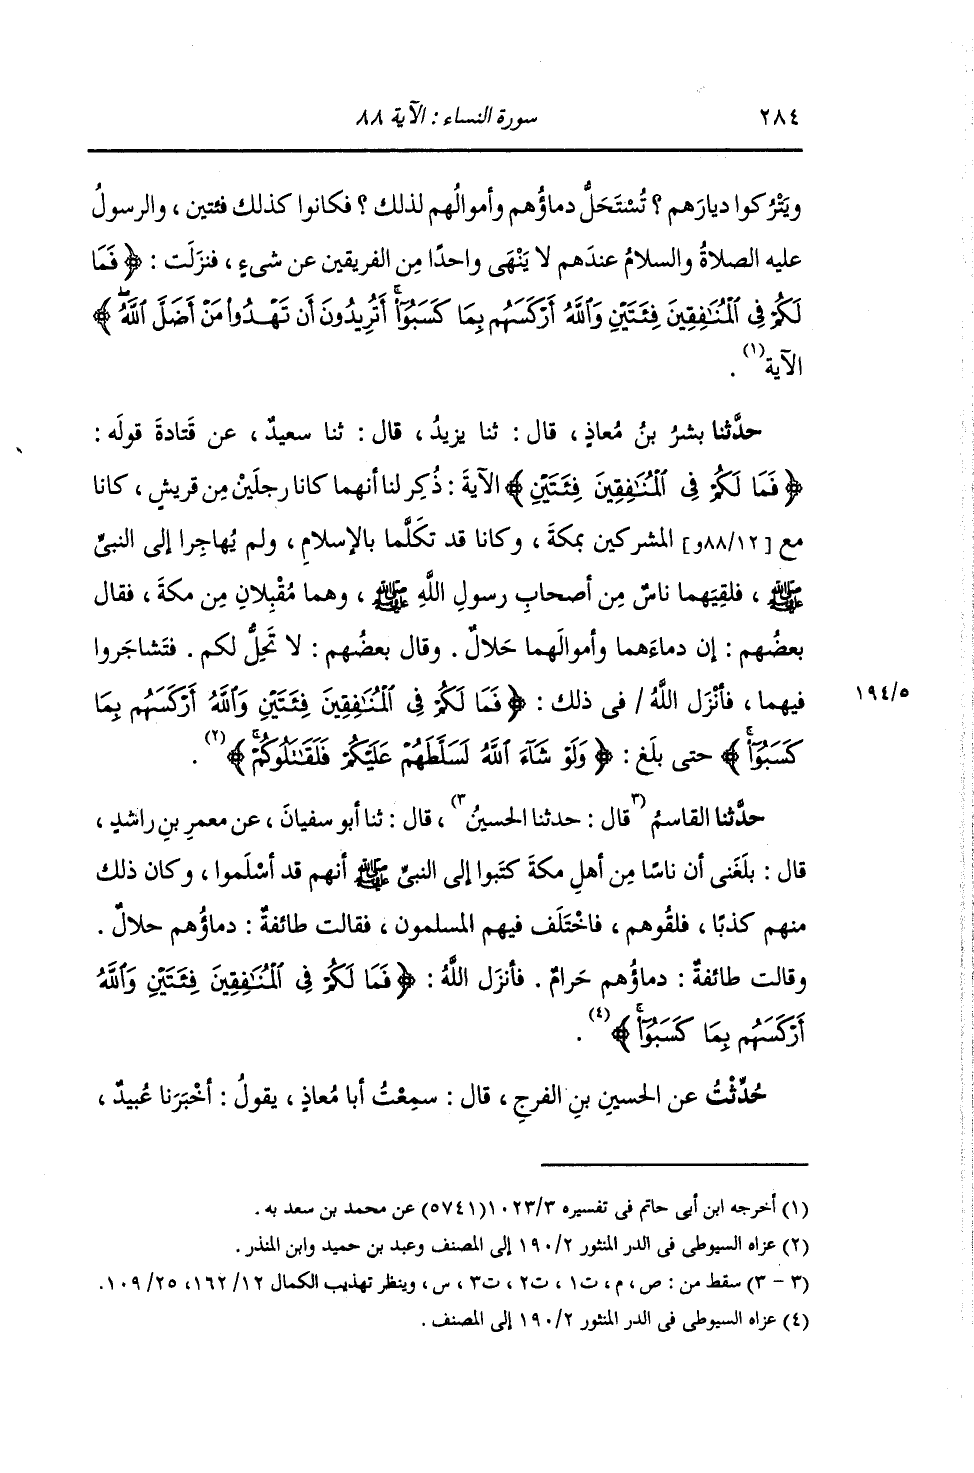 ٢٨٤
سورة النساء : الآية ٨٨
ويَتْرُكوا ديارَهم ؟ تُسْتَحَلُّ دماؤُهم وأموالُهم لذلك ؟ فكانوا كذلك فئتين ، والرسولُ
عليه الصلاةُ والسلامُ عندَهم لا يَنْهَى واحدًا مِن الفريقين عن شىءٍ ، فنزَلَت : ﴿ فَمَا
لَكُمْ فِي ٱلْمُنَٰفِقِينَ فِئَتَيْنِ وَٱللَّهُ أَرْكَسَهُم بِمَا كَسَبُوٓا۟ۚ أَتُرِيدُونَ أَن تَهْدُوا۟ مَنْ أَضَلَّ ٱللَّهُۖ ﴾
الآية(١) .
حدَّثنا بشرُ بنُ مُعاذٍ ، قال : ثنا يزيدُ ، قال : ثنا سعيدٌ ، عن قَتادةَ قولَه :
﴿ فَمَا لَكُمْ فِي ٱلْمُنَٰفِقِينَ فِئَتَيْنِ ﴾ الآيةَ : ذُكِر لنا أنهما كانا رجلَيْن مِن قريشٍ ، كانا
مع [٨٨/١٢و] المشركين بمكةَ ، وكانا قد تكَلَّما بالإسلامِ ، ولم يُهاجِرا إلى النبىِّ
ﷺ ، فلقِيَهما ناسٌ مِن أصحابِ رسولِ اللَّهِ ﷺ ، وهما مُقْبِلان مِن مكةَ ، فقال
بعضُهم : إن دماءَهما وأموالَهما حَلالٌ . وقال بعضُهم : لا تَحِلُّ لكم . فتَشاجَروا
فيهما ، فأَنْزَل اللَّهُ / فى ذلك : ﴿ فَمَا لَكُمْ فِي ٱلْمُنَٰفِقِينَ فِئَتَيْنِ وَٱللَّهُ أَرْكَسَهُم بِمَا
١٩٤/٥
كَسَبُوٓا۟ۚ ﴾ حتى بلَغ : ﴿ وَلَوْ شَآءَ ٱللَّهُ لَسَلَّطَهُمْ عَلَيْكُمْ فَلَقَٰتَلُوكُمْۚ ﴾(٢) .
حدَّثنا القاسمُ (٣ قال : حدثنا الحسينُ ٣) ، قال : ثنا أبو سفيانَ ، عن معمرِ بنِ راشدٍ ،
قال : بلَغَنى أن ناسًا مِن أهلِ مكةَ كتَبوا إلى النبىِّ ﷺ أنهم قد أسْلَموا ، وكان ذلك
منهم كذبًا ، فلقُوهم ، فاخْتَلَف فيهم المسلمون ، فقالت طائفةٌ : دماؤُهم حلالٌ .
وقالت طائفةٌ : دماؤُهم حَرامٌ . فأنزل اللَّهُ : ﴿ فَمَا لَكُمْ فِي ٱلْمُنَٰفِقِينَ فِئَتَيْنِ وَٱللَّهُ
أَرْكَسَهُم بِمَا كَسَبُوٓا۟ۚ ﴾(٤) .
حُدِّثْتُ عن الحسينِ بنِ الفرجِ ، قال : سمِعْتُ أبا مُعاذٍ ، يقولُ : أخْبَرَنا عُبيدٌ ،
(١) أخرجه ابن أبى حاتم فى تفسيره ١٠٢٣/٣ (٥٧٤١) عن محمد بن سعد به .
(٢) عزاه السيوطى فى الدر المنثور ١٩٠/٢ إلى المصنف وعبد بن حميد وابن المنذر .
(٣ - ٣) سقط من : ص ، م ، ت١ ، ت٢ ، ت٣ ، س ، وينظر تهذيب الكمال ١٦٢/١٢، ١٠٩/٢٥.
(٤) عزاه السيوطى فى الدر المنثور ١٩٠/٢ إلى المصنف .